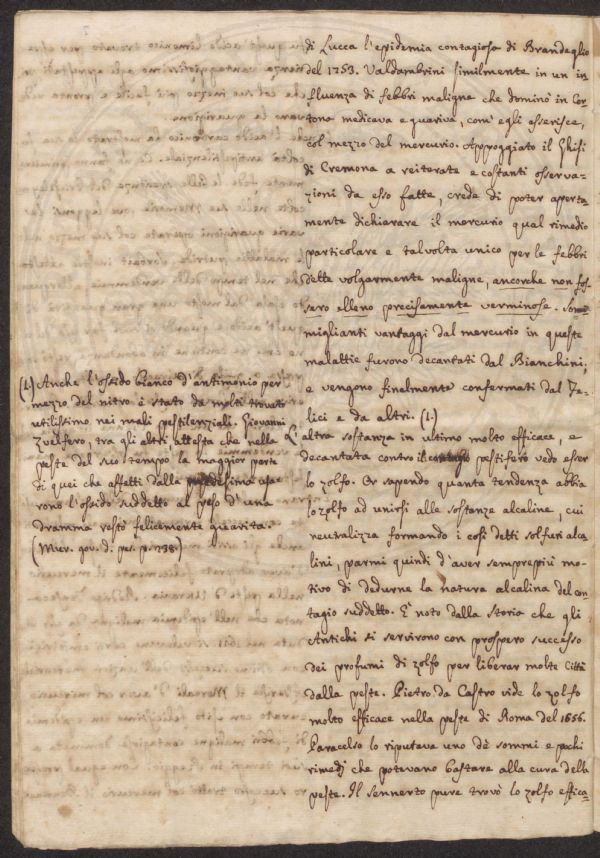 di Lucca l'epidemia contagiosa di Brandeglio
del 1753. Valdambrini similmente in un in-
fluenza di febbri maligne che dominò in Cor-
tona medicava e guariva, com' egli asserisce,
col mezzo del mercurio. Appoggiato il Ghisi
di Cremona a reiterate e costanti osserva-
zioni da esso fatte, crede di poter aperta
mente dichiarare il mercurio qual rimedio
particolare e talvolta unico per le febbri
dette volgarmente maligne, ancorche non fos-
saro elleno precisamente verminose. Somi-
miglianti vantaggi dal mercurio in queste
malattie furono decantati dal Bianchini,
e vengono finalmente confermati dal Ja-
lici e da altri. (1.)
L'altra sostanza in ultimo molto efficace, e
decantata contro il contagio pestifero vedo esser
lo zolfo. Or sapendo quanta tendenza abbia
lo zolfo ad unirsi alle sostanze alcaline, cui
neutralizza formando i così detti solfuri alca
lini, parmi quindi d'aver semprepiù mo-
tivo di dedurne la natura alcalina del con
tagio suddetto. E' noto dalla storia che gli
Antichi si servirono con prospero successo
dei profumi di zolfo per liberar molte Città
dalla peste. Pietro da Castro vide lo zolfo
molto efficace nella peste di Roma del 1656.
Paracelso lo riputava uno dè sommi e pochi
rimedj che potevano bastare alla cura della
peste. Il Sennerto pure trovò lo zolfo effica-
(1.) Anche l'ossido bianco d'antimonio per
mezzo del nitro è stato da molti trovato
utilissimo nei mali pestilenziali. Giovanni
Zvelfero, tra gli altri attesta che nella
peste del suo tempo la maggior parte
di quei che affetti dalla medesima usa-
rono l'ossido suddetto al peso d'una
dramma restò felicemente guarita.
(Mur. gov. d. pes. p. 238.)